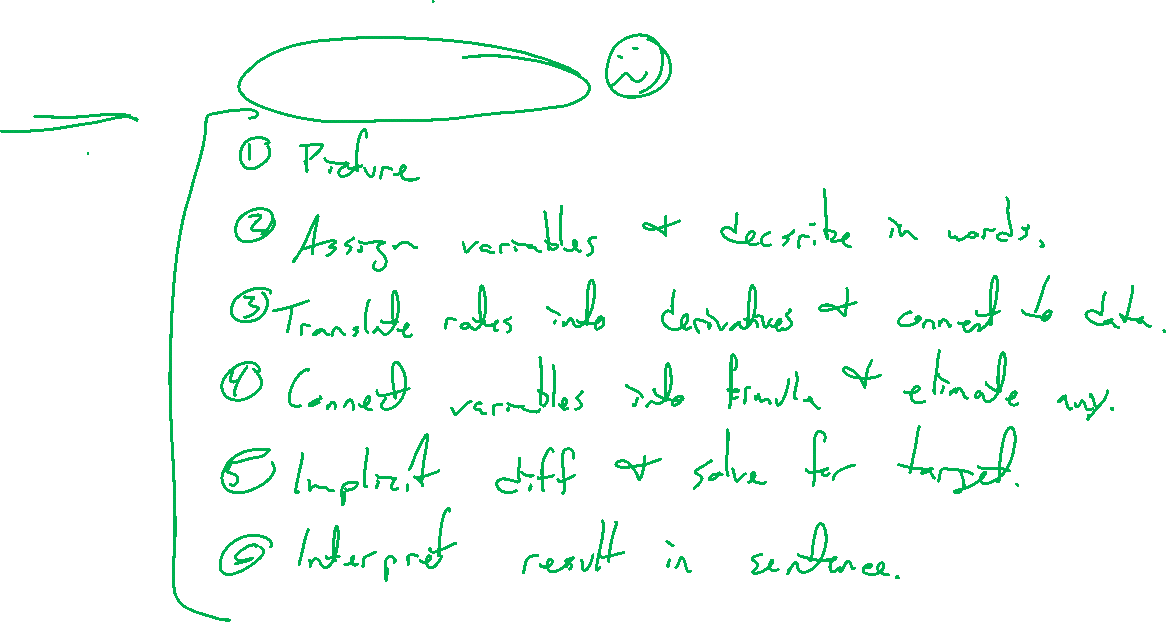 ① Picture
② Assign variables & describe in words.
③ Translate rates into derivatives & connect to data.
④ Connect variables into formula & elimate any.
⑤ Implicit diff & solve for target.
⑥ Interpret result in sentence.